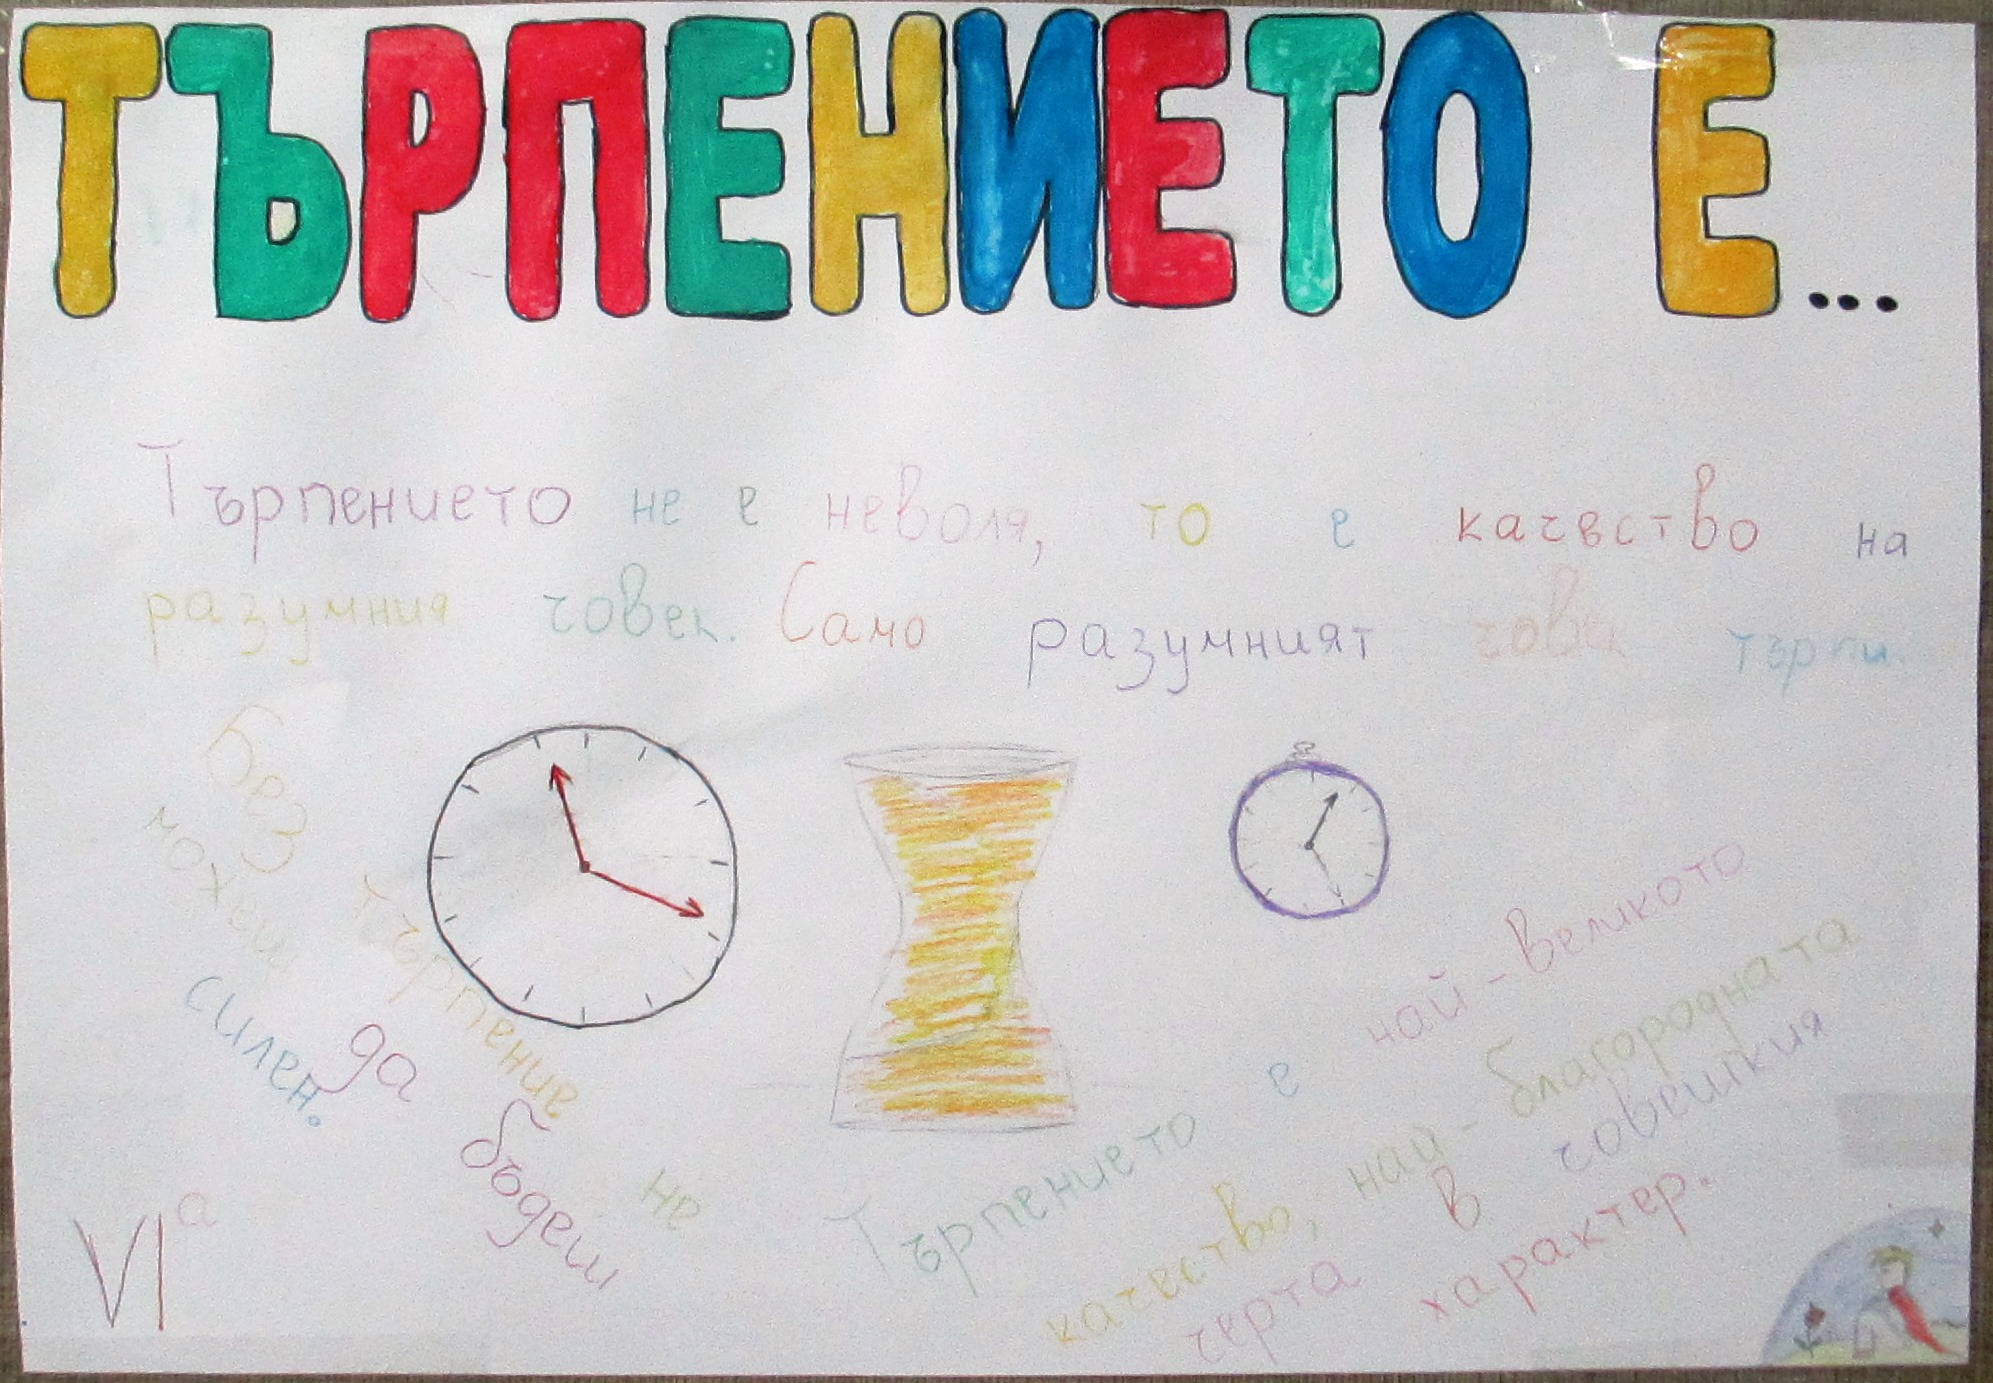 ТЪРПЕНИЕТО Е...
Търпението не е неволя, то е качвство на
разумния човек. Само разумният човек търпи.
Без търпение не
можеш да бъдеш
силен.
Търпението е най-великото
качество, най-благородната
черта в човешкия
характер.
VI а